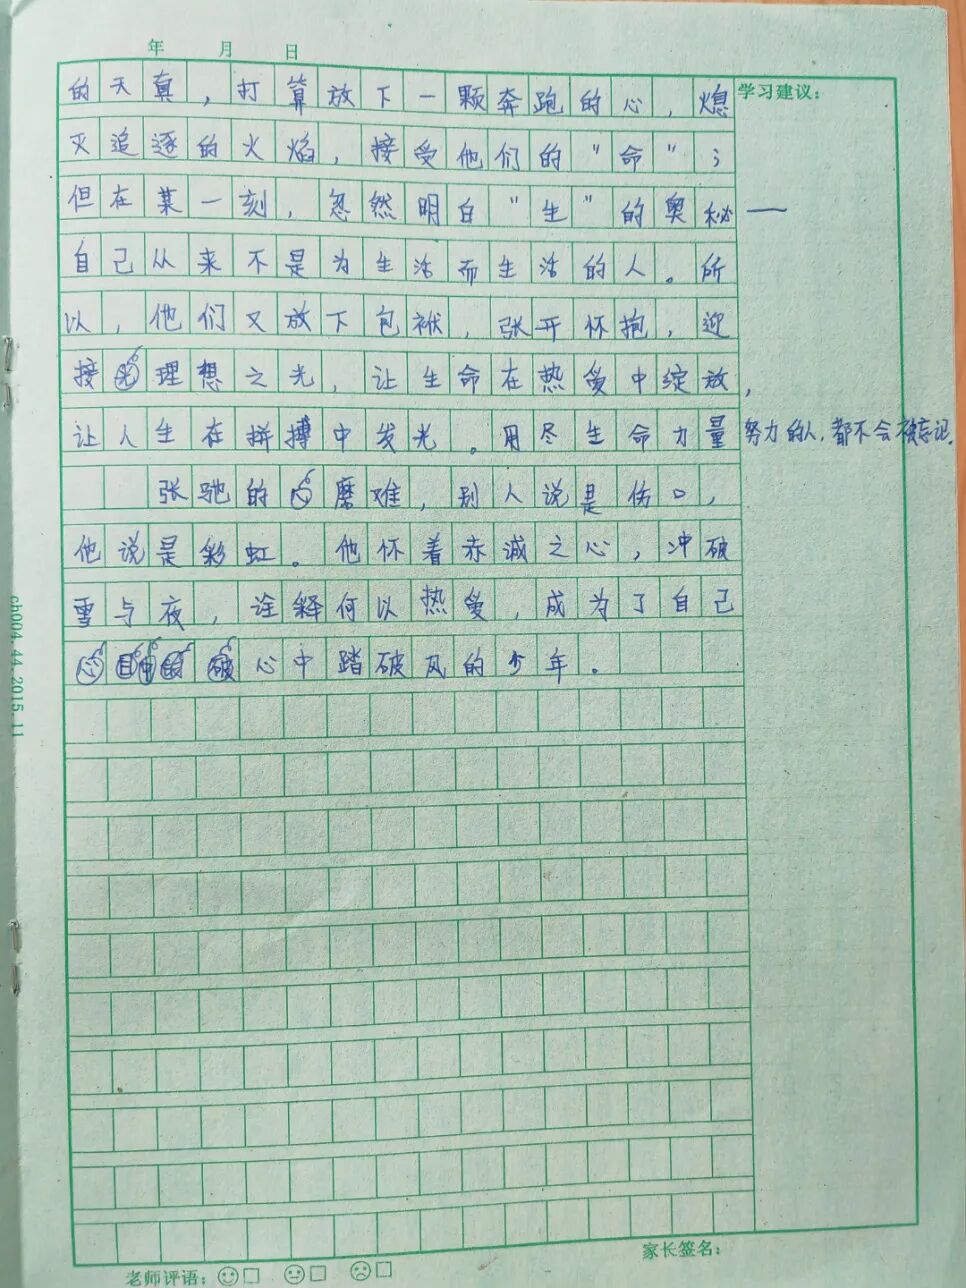 年 月 日
学习建议：
的天真，打算放下一颗奔跑的心，熄
灭追逐的火焰，接受他们的“命”；
但在某一刻，忽然明白“生”的奥秘——
自己从来不是为生活而生活的人。所
以，他们又放下包袱，张开怀抱，迎
接理想之光，让生命在热爱中绽放，
让人生在拼搏中发光。用尽生命力量努力的人，都不会被忘记。
张驰的磨难，别人说是伤口，
他说是彩虹。他怀着赤诚之心，冲破
雪与夜，诠释何以热爱，成为了自己
心中踏破风的少年。
ch004.44.2015.11
家长签名：
老师评语：